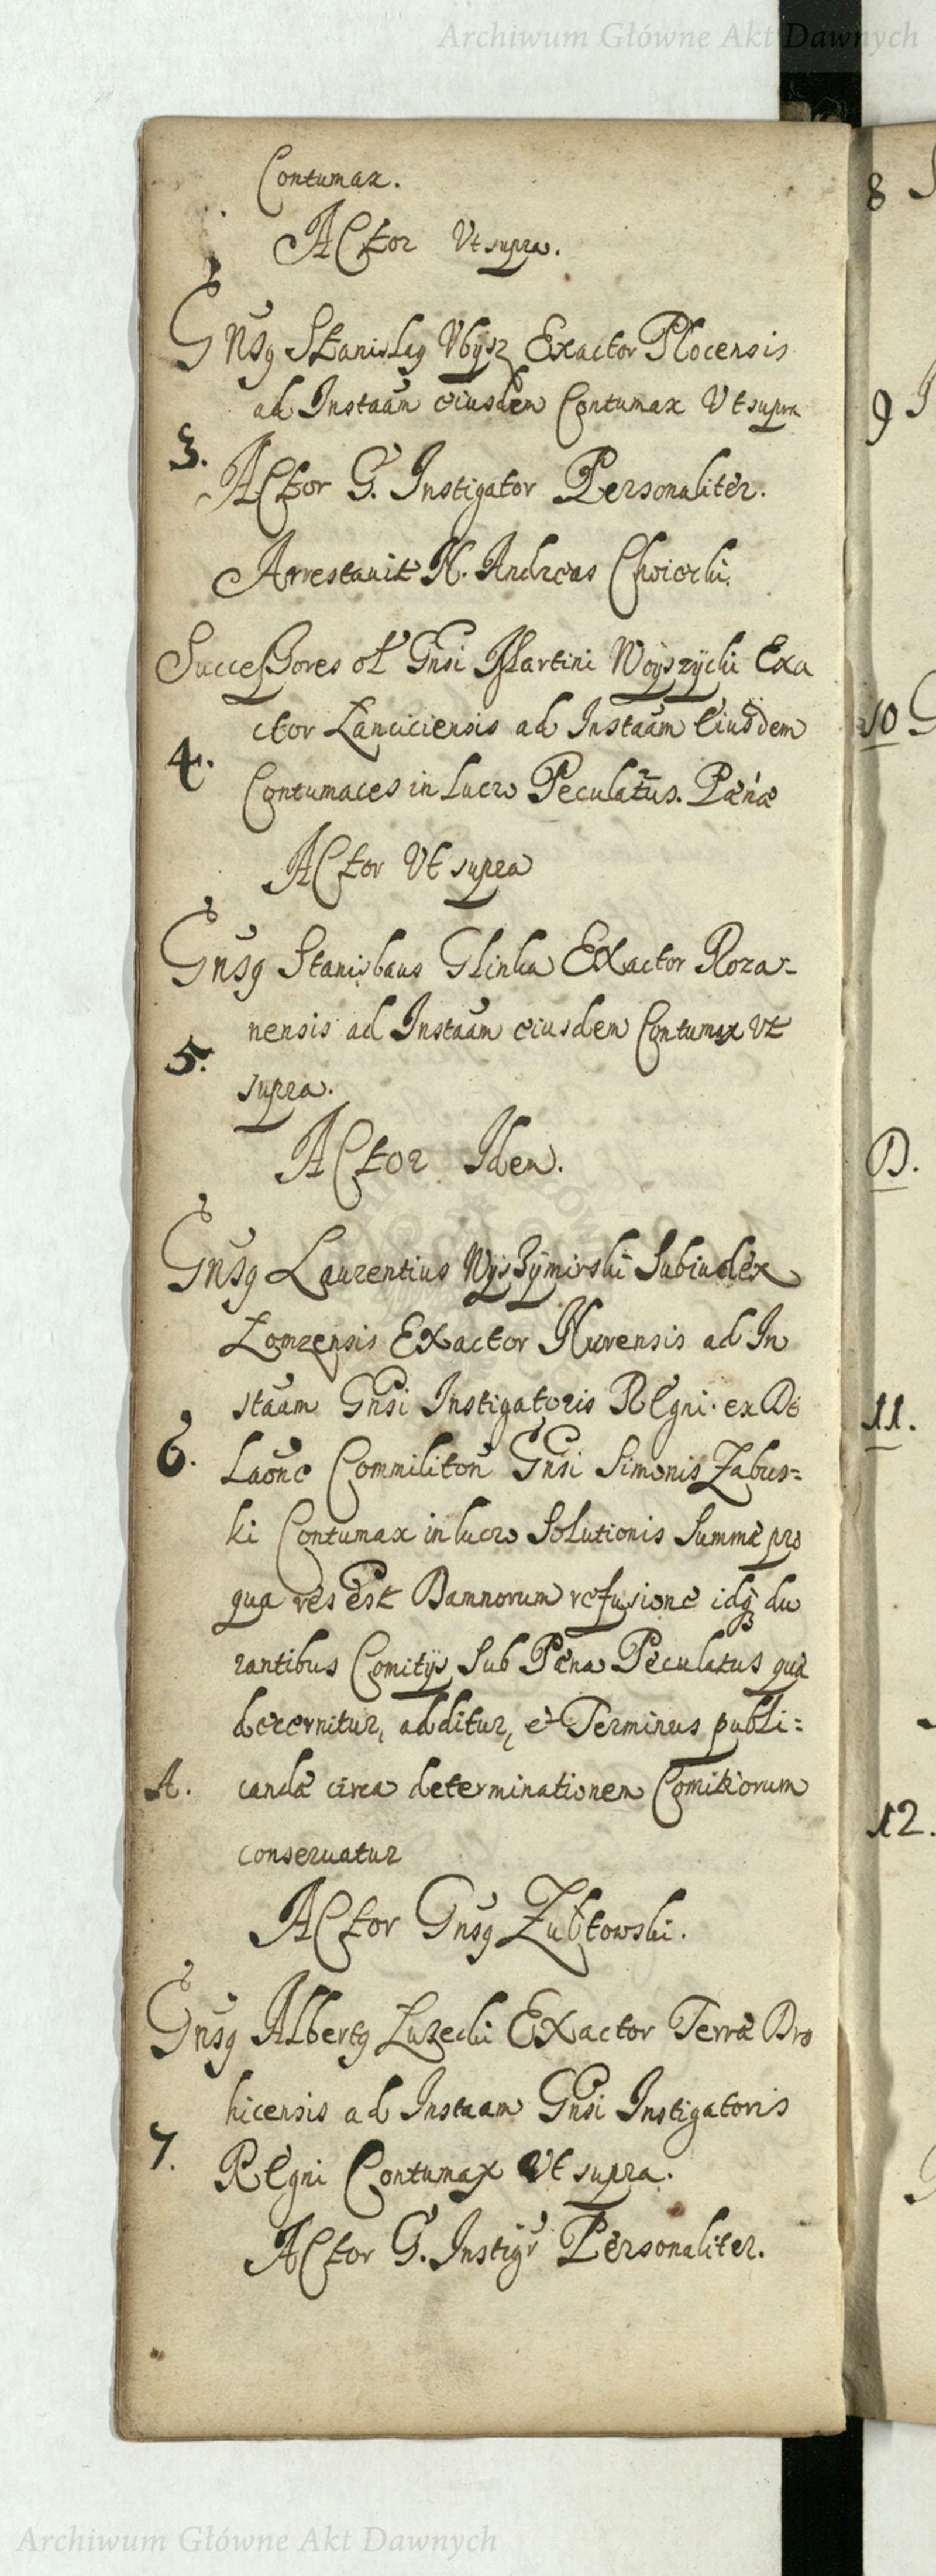 Archiwum Główne Akt Dawnych
Contumax.
Actor Vt supra.
Gnsg Stanislag Vbysz Exactor Plocensis
ad Instaam eiusdem Contumax Vt supra
3.
Actor G. Instigator Personaliter.
Arrestauit N. Andreas Choiecki.
Successores ol Gnsi Martini Woyszycki Exa
ctor Lanciciensis ad Instaam Eiusdem
4.
Contumaces in lucro Peculatus. Pænæ
Actor Vt supra
Gnsg Stanislaus Glinka Exactor Roza-
nensis ad Instaam eiusdem Contumax Vt
5.
supra.
Actor Idem.
Gnsg Laurentius Wyszymirski Subiudex
Lomzensis Exactor Nurensis ad In
staam Gnsi Instigatoris Regni ex De
6.
laone Commiliton Gnsi Simonis Zabus=
ki Contumax in lucro Solutionis Summæ pro
qua res est Damnorum refusione idq du
rantibus Comitijs Sub Pæna Peculatus quæ
decernitur, additur, et Terminus publi=
A.
candæ circa determinationem Comitiorum
conseruatur
Actor Gnsg Zubtowski.
Gnsg Albertg Luzecki Exactor Terræ Dro
hicensis ad Instaam Gnsi Instigatoris
7.
Regni Contumax Vt supra.
Actor G. Instigr Personaliter.
8
9
10
D.
11.
12.
Archiwum Główne Akt Dawnych